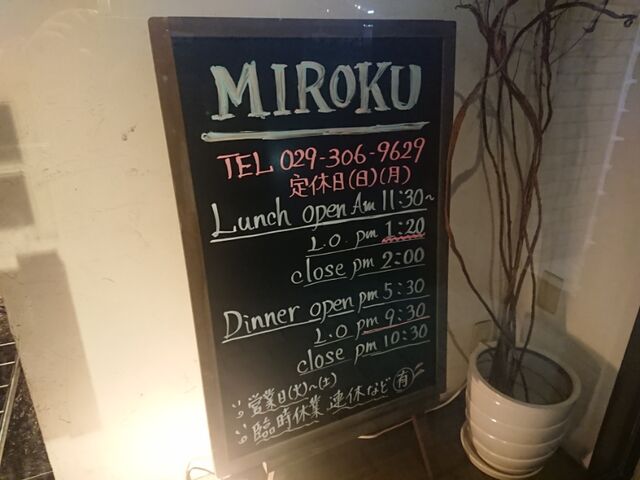 MIROKU
TEL 029-306-9629
定休日(日)(月)
Lunch open Am 11:30~
L.O. pm 1:20
close pm 2:00
Dinner open pm 5:30
L.O pm 9:30
close pm 10:30
営業日(火)~(土)
臨時休業 連休など 有